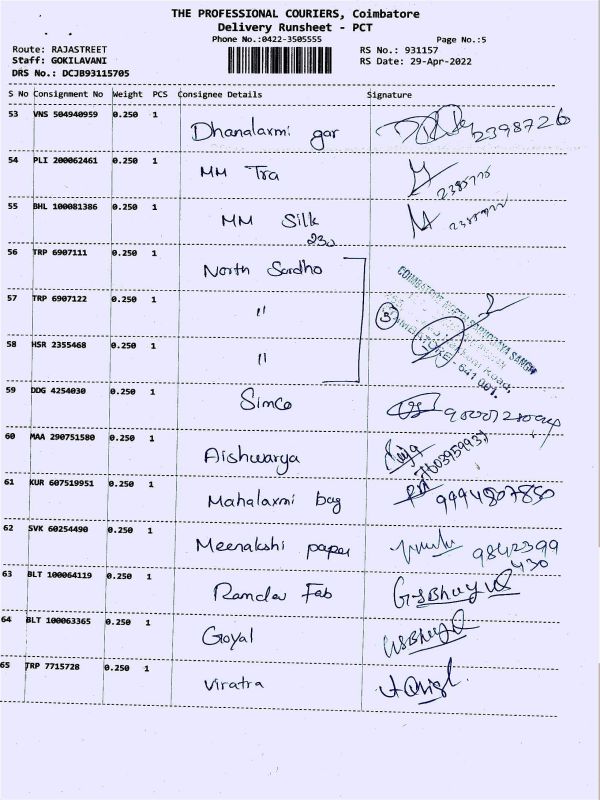 THE PROFESSIONAL COURIERS, Coimbatore
Delivery Runsheet - PCT
Phone No.:0422-3505555
Page No.:5
Route: RAJASTREET
RS No.: 931157
Staff: GOKILAVANI
RS Date: 29-Apr-2022
DRS No.: DCJB93115705
S No Consignment No Weight PCS Consignee Details Signature
53 VNS 504940959 0.250 1 Dhanalaxmi gar 2398726
54 PLI 200062461 0.250 1 MM Tra
55 BHL 100081386 0.250 1 MM Silk
230
56 TRP 6907111 0.250 1 North Sardho
57 TRP 6907122 0.250 1 " 3
58 HSR 2355468 0.250 1 "
641 001.
59 DDG 4254030 0.250 1 Simco
60 MAA 290751580 0.250 1 Aishwarya
61 KUR 607519951 0.250 1 Mahalaxmi bag 9994807850
62 SVK 60254490 0.250 1 Meenakshi paper 9842399
430
63 BLT 100064119 0.250 1 Ramdev Fab
64 BLT 100063365 0.250 1 Goyal
65 TRP 7715728 0.250 1 Viratra